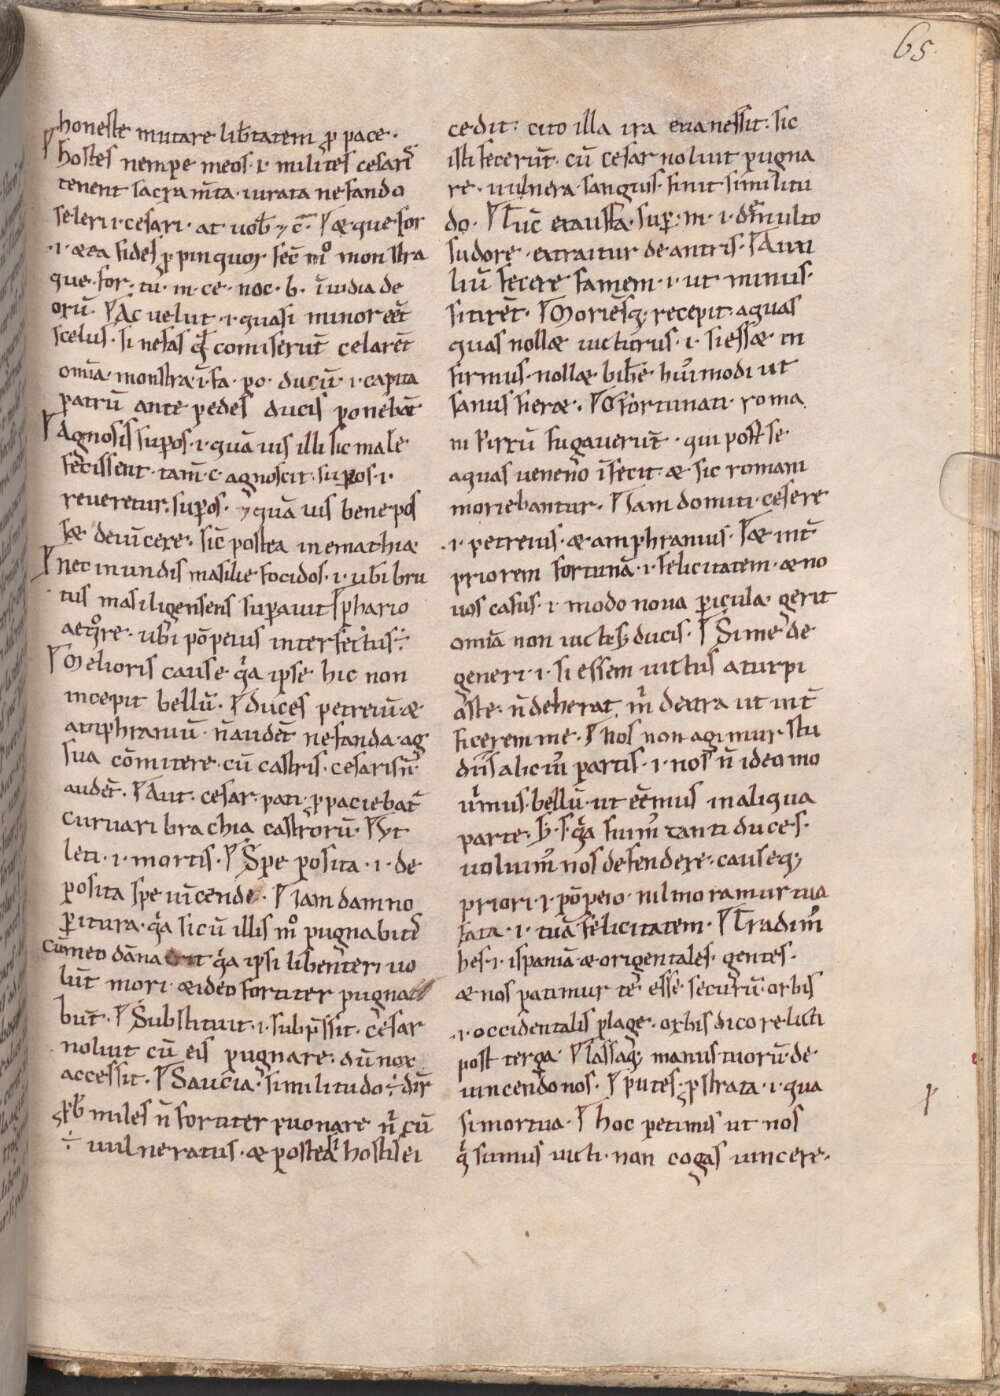 65
honeste mutare lib̄tatem ꝓ pace.
hostes nempe meos .i. milites cesarꝭ
tenent sacra mīta iurata nefando
seleri .i. cesari. at uob̄ ⁊ c̄. ⁊ æque for
.i. æa fides ꝓpinquor fec̄ m̊ monstra
que. for. tū. m. ce. noc. b. īuidia de
orū. Ac uelut .i. quasi minor eēt
scelus. si nefas qđ comiserūt celarēt
omīa. monstra .i. fa. po. ducū .i. capita
patrū ante pedes ducis ponebāt
Agnosis supos .i. quā uis illi sic male
fecissent. tam̄. c. agnoscit. supos .i.
reueretur. supos. ⁊ quā uis bene pos
sæ deuīcere. sic̄ postea in emathia
Nec in undis masilie focidos .i. ubi bru
tus masiligensens supauit phario
aeqͦre. ubi pōpeius interfectus.
Melioris cause. qͣa ipse hic non
incepit bellū. duces petreiū æ
amphraniū. n̄ audēt nefanda ag
sua cōmitere. cū castris. cesaris n̄
audēt. Aut. cesar. pati. ꝓ pacieba͞t
curuari brachia castrorū. Vt
leti .i. mortis. Spe posita .i. de
posita spe uīcendi. Iam damno
ꝑitura. qͣa sicū illis m̊ pugnabit
cum eo dāna erit qͣa ipsi libenter uo
lūt mori. æ ideo fortiter pugna
būt. Substituit .i. subpͥssit. cesar
noluit cū eis pugnare. dū nox
accessit. Saucia. similitudo ÷ diꝶ
ꝙ miles n̄ fortiter pugnare n̄ cū
÷ uulneratus. æ postea hostis ei
cedit. cito illa ira euanessit. sic
isti fecerūt. cū cesar noluit pugna
re. uulnera. sanguis. finit similitu
do. Tūc exausta. sup. m. i. multo
sudore. extraitur de antris. Auxi
liū fecere famem .i. ut minus
sitirēt. Moriēsqꝫ recepit aquas
quas nollæ uicturus .i. si essæ in
firmus. nollæ bibe huīmodi ut
sanus fieræ. O fortunati. roma
ni Pirrū fugauerūt. qui post se
aquas ueneno īfecit æ sic romani
moriebantur. Iam domiti cesere
.i. petreius. æ amphranius. sæ int̄
priorem fortunā .i. felicitatem. æ no
uos casus .i. modo noua ꝑicula. gerit
omīa non uictes ducis. Si me de
generi .i. si essem uictus a turpi
oste. n̄ deherat m̄ dextra ut int̄
ficerem me. nos non agimur stu
diis alicuī partis .i. nos n̄ ideo mo
uīmus. bellū. ut eēmus in aliqua
parte. s; qͣa fuiꝯ tanti duces.
uoluimꝰ nos defendere. causeqꝫ
priori .i. pōpeio. nil moramur tua
fata .i. tuā felicitatem. Tradimꝰ
hes .i. ispaniā æ origentales gentes.
æ nos patimur te esse securū. orbis
.i. occidentalis plage. orbis dico relicti
post terga. lassaqꝫ manus tuorū. de
uincendo nos. putes. ꝓstrata .i. qua
si mortua. hoc petimus ut nos
qͥ sumus uicti. non cogas uincere.